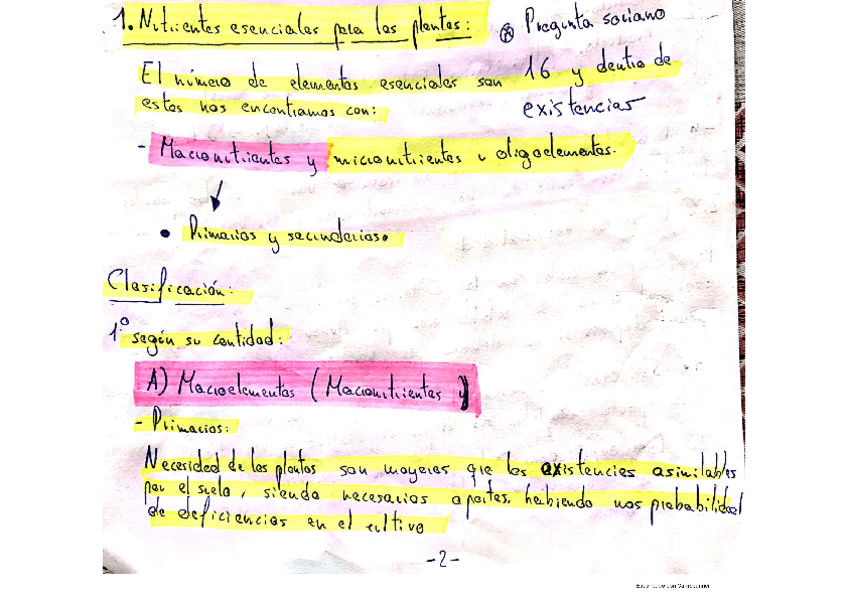 1. Nutrientes esenciales para las plantas: ⊗ Pregunta soriano
El número de elementos esenciales son 16 y dentro de
estos nos encontramos con: existencias
- Macronutrientes y micronutrientes u oligoelementos.
• Primarios y secundarios.
Clasificación:
1º según su cantidad:
A) Macroelementos (Macronutrientes)
- Primarios:
Necesidad de las plantas son mayores que las existencias asimilables
por el suelo, siendo necesarios aportes, habiendo mas probabilidad
de deficiencias en el cultivo
-2-